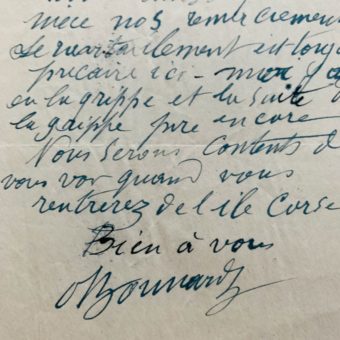 mèce nos remerciement
Le ravitaillement est touj
précaire ici - mon
eu la grippe et la suite d
la grippe pire encore
Nous serons contents d
vous voir quand vous
rentrerez de l'ile Corse
Bien à vous
Bonnard